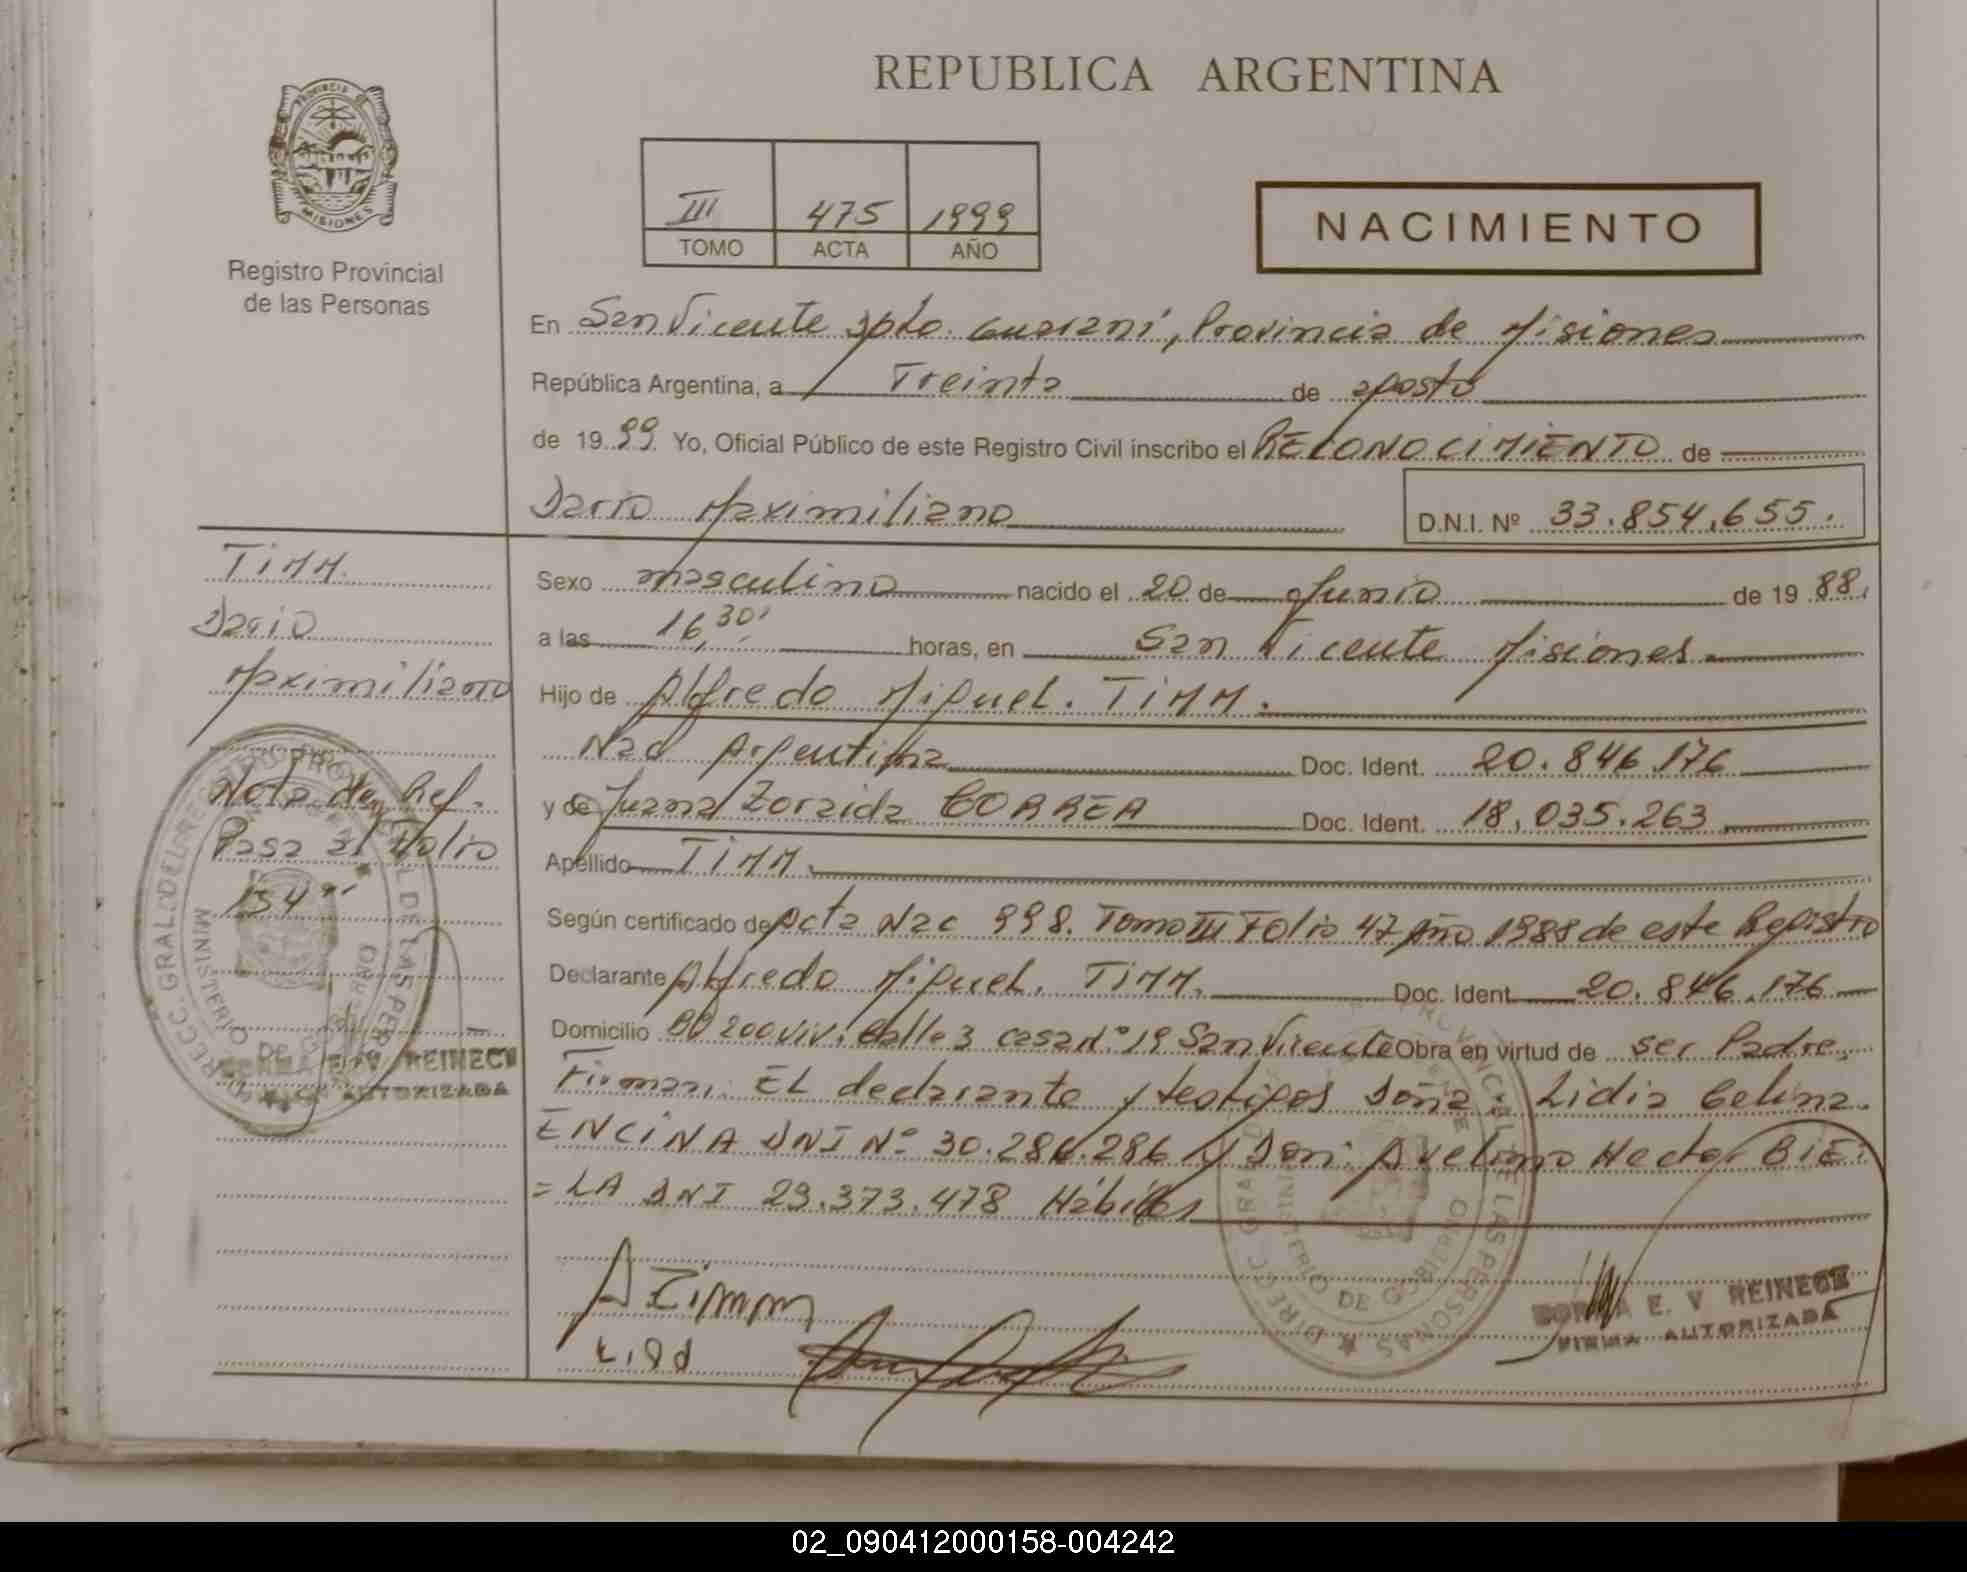 REPUBLICA ARGENTINA
PROVINCIA DE
MISIONES
Registro Provincial
de las Personas
III 475 1999
TOMO ACTA AÑO
NACIMIENTO
En San Vicente Dpto. Guaraní, Provincia de Misiones
República Argentina, a Treinta de agosto
de 1999 Yo, Oficial Público de este Registro Civil inscribo el RECONOCIMIENTO de
Dario Maximiliano D.N.I. Nº 33.854.655.
TIMM.
Dario
Maximiliano
Nota de Ref.
Pasa al Folio
154
Sexo masculino nacido el 20 de Junio de 1988.
a las 16,30' horas, en San Vicente Misiones.
Hijo de Alfredo Miguel. TIMM.
Nac Argentina Doc. Ident. 20.846.176
y de Juana Zoraida CORREA Doc. Ident. 18.035.263
Apellido TIMM.
Según certificado de Acta Nac 998. Tomo III Folio 47 Año 1988 de este Registro
Declarante Alfredo Miguel. TIMM. Doc. Ident. 20.846.176
Domicilio BO 200 viv. Calle 3 casa Nº 19 San Vicente Obra en virtud de ser Padre.
Firman. EL declarante y testigos Doña. Lidia Celina.
ENCINA DNI Nº 30.286.286 y Don. Avelino Hector BIE
= LA DNI 29.373.478 Hábiles
A Timm
E. V REINECK
FIRMA AUTORIZADA
E. V REINECK
AUTORIZADA
DIRECC. GRAL. DEL REGISTRO PROVINCIAL DE LAS PERSONAS
MINISTERIO DE GOBIERNO
DIRECC. GRAL. PROVINCIAL DE LAS PERSONAS
MINISTERIO DE GOBIERNO
02_090412000158-004242